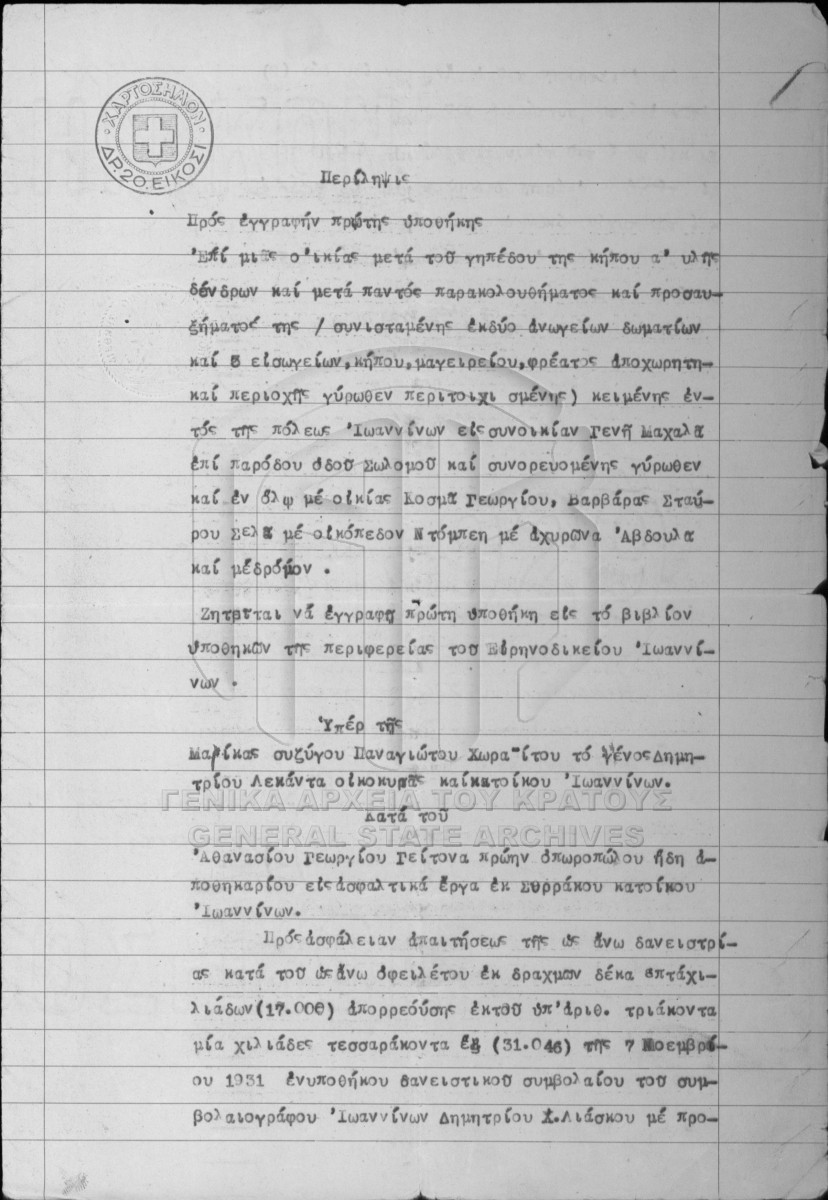 ΧΑΡΤΟΣΗΜΟΝ
ΔΡ. 20. ΕΙΚΟΣΙ
Περίληψις
Πρός ἐγγραφήν πρώτης ὑποθήκης
Ἐπί μιᾶς οἰκίας μετά τοῦ γηπέδου της κήπου α' υλῆς
δένδρων καί μετά παντός παρακολουθήματος καί προσαυ-
ξήματος της / συνισταμένης ἐκδύο ἀνωγείων δωματίων
καί 5 εἰσωγείων,κήπου,μαγειρείου,φρέατος ἀποχωρητη-
καί περιοχῆς γύρωθεν περιτοιχι σμένης) κειμένης ἐν-
τός τῆς πόλεως Ἰωαννίνων εἰςσυνοικίαν Γενῆ Μαχαλᾶ
ἐπί παρόδου ὁδοῦ Σωλομοῦ καί συνορευομένης γύρωθεν
καί ἐν ὅλῳ μέ οἰκίας Κοσμᾶ Γεωργίου, Βαρβάρας Σταύ-
ρου Σελᾶ μέ οἰκόπεδον Ντόμπεη μέ ἀχυρῶνα Ἀβδουλᾶ
καί μέδρόμον .
Ζητεῖται νά ἐγγραφῇ πρώτη ὑποθήκη εἰς τό βιβλίον
ὑποθηκῶν τῆς περιφερείας τοῦ Εἰρηνοδικείου Ἰωαννί-
νων .
Ὑπέρ τῆς
Μαρίκας συζύγου Παναγιώτου Χωραΐτου τό γένοςΔημη-
τρίου Λεκάντα οἰκοκυρᾶς καίκατοίκου Ἰωαννίνων.
ΓΕΝΙΚΑ ΑΡΧΕΙΑ ΤΟΥ ΚΡΑΤΟΥΣ
Κατά τοῦ
GENERAL STATE ARCHIVES
Ἀθανασίου Γεωργίου Γείτονα πρώην ὀπωροπώλου ἤδη ἀ-
ποθηκαρίου εἰςἀσφαλτικά ἔργα ἐκ Συρράκου κατοίκου
Ἰωαννίνων.
Πρόςἀσφάλειαν ἀπαιτήσεως τῆς ὡς ἄνω δανειστρί-
ας κατά τοῦ ὡςἄνω ὀφειλέτου ἐκ δραχμῶν δέκα ἑπτάχι-
λιάδων(17.000) ἀπορρεούσης ἐκτοῦ ὑπ'ἀριθ. τριάκοντα
μία χιλιάδες τεσσαράκοντα ἕξ (31.046) τῆς 7 Νοεμβρί-
ου 1931 ἐνυποθήκου δανειστικοῦ συμβολαίου τοῦ συμ-
βολαιογράφου Ἰωαννίνων Δημητρίου Χ.Λιάσκου μέ προ-